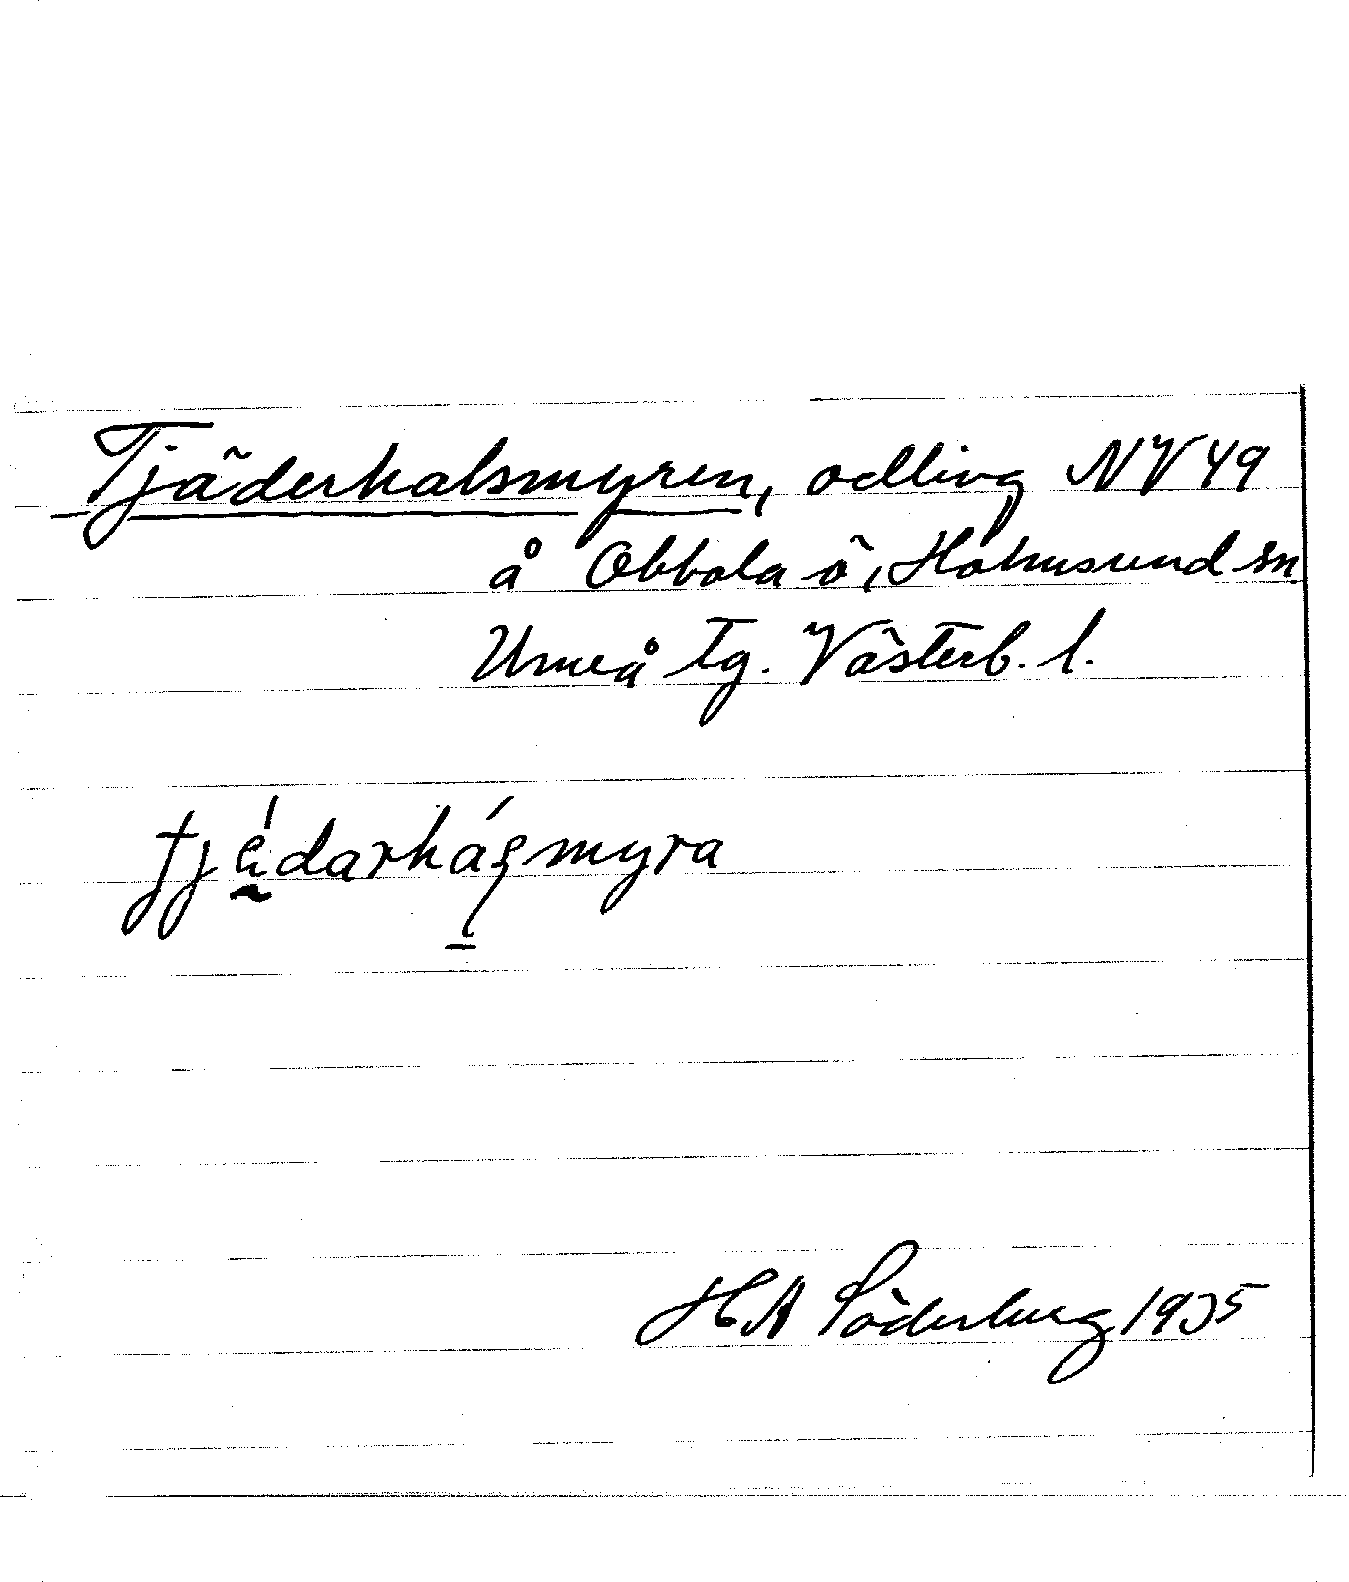 Tjäderhalsmyren, odling NV 49
å Obbola ö, Holmsund sn
Umeå Tg. Västerb. l.
tjädarhásmyra
HA Söderberg 1935